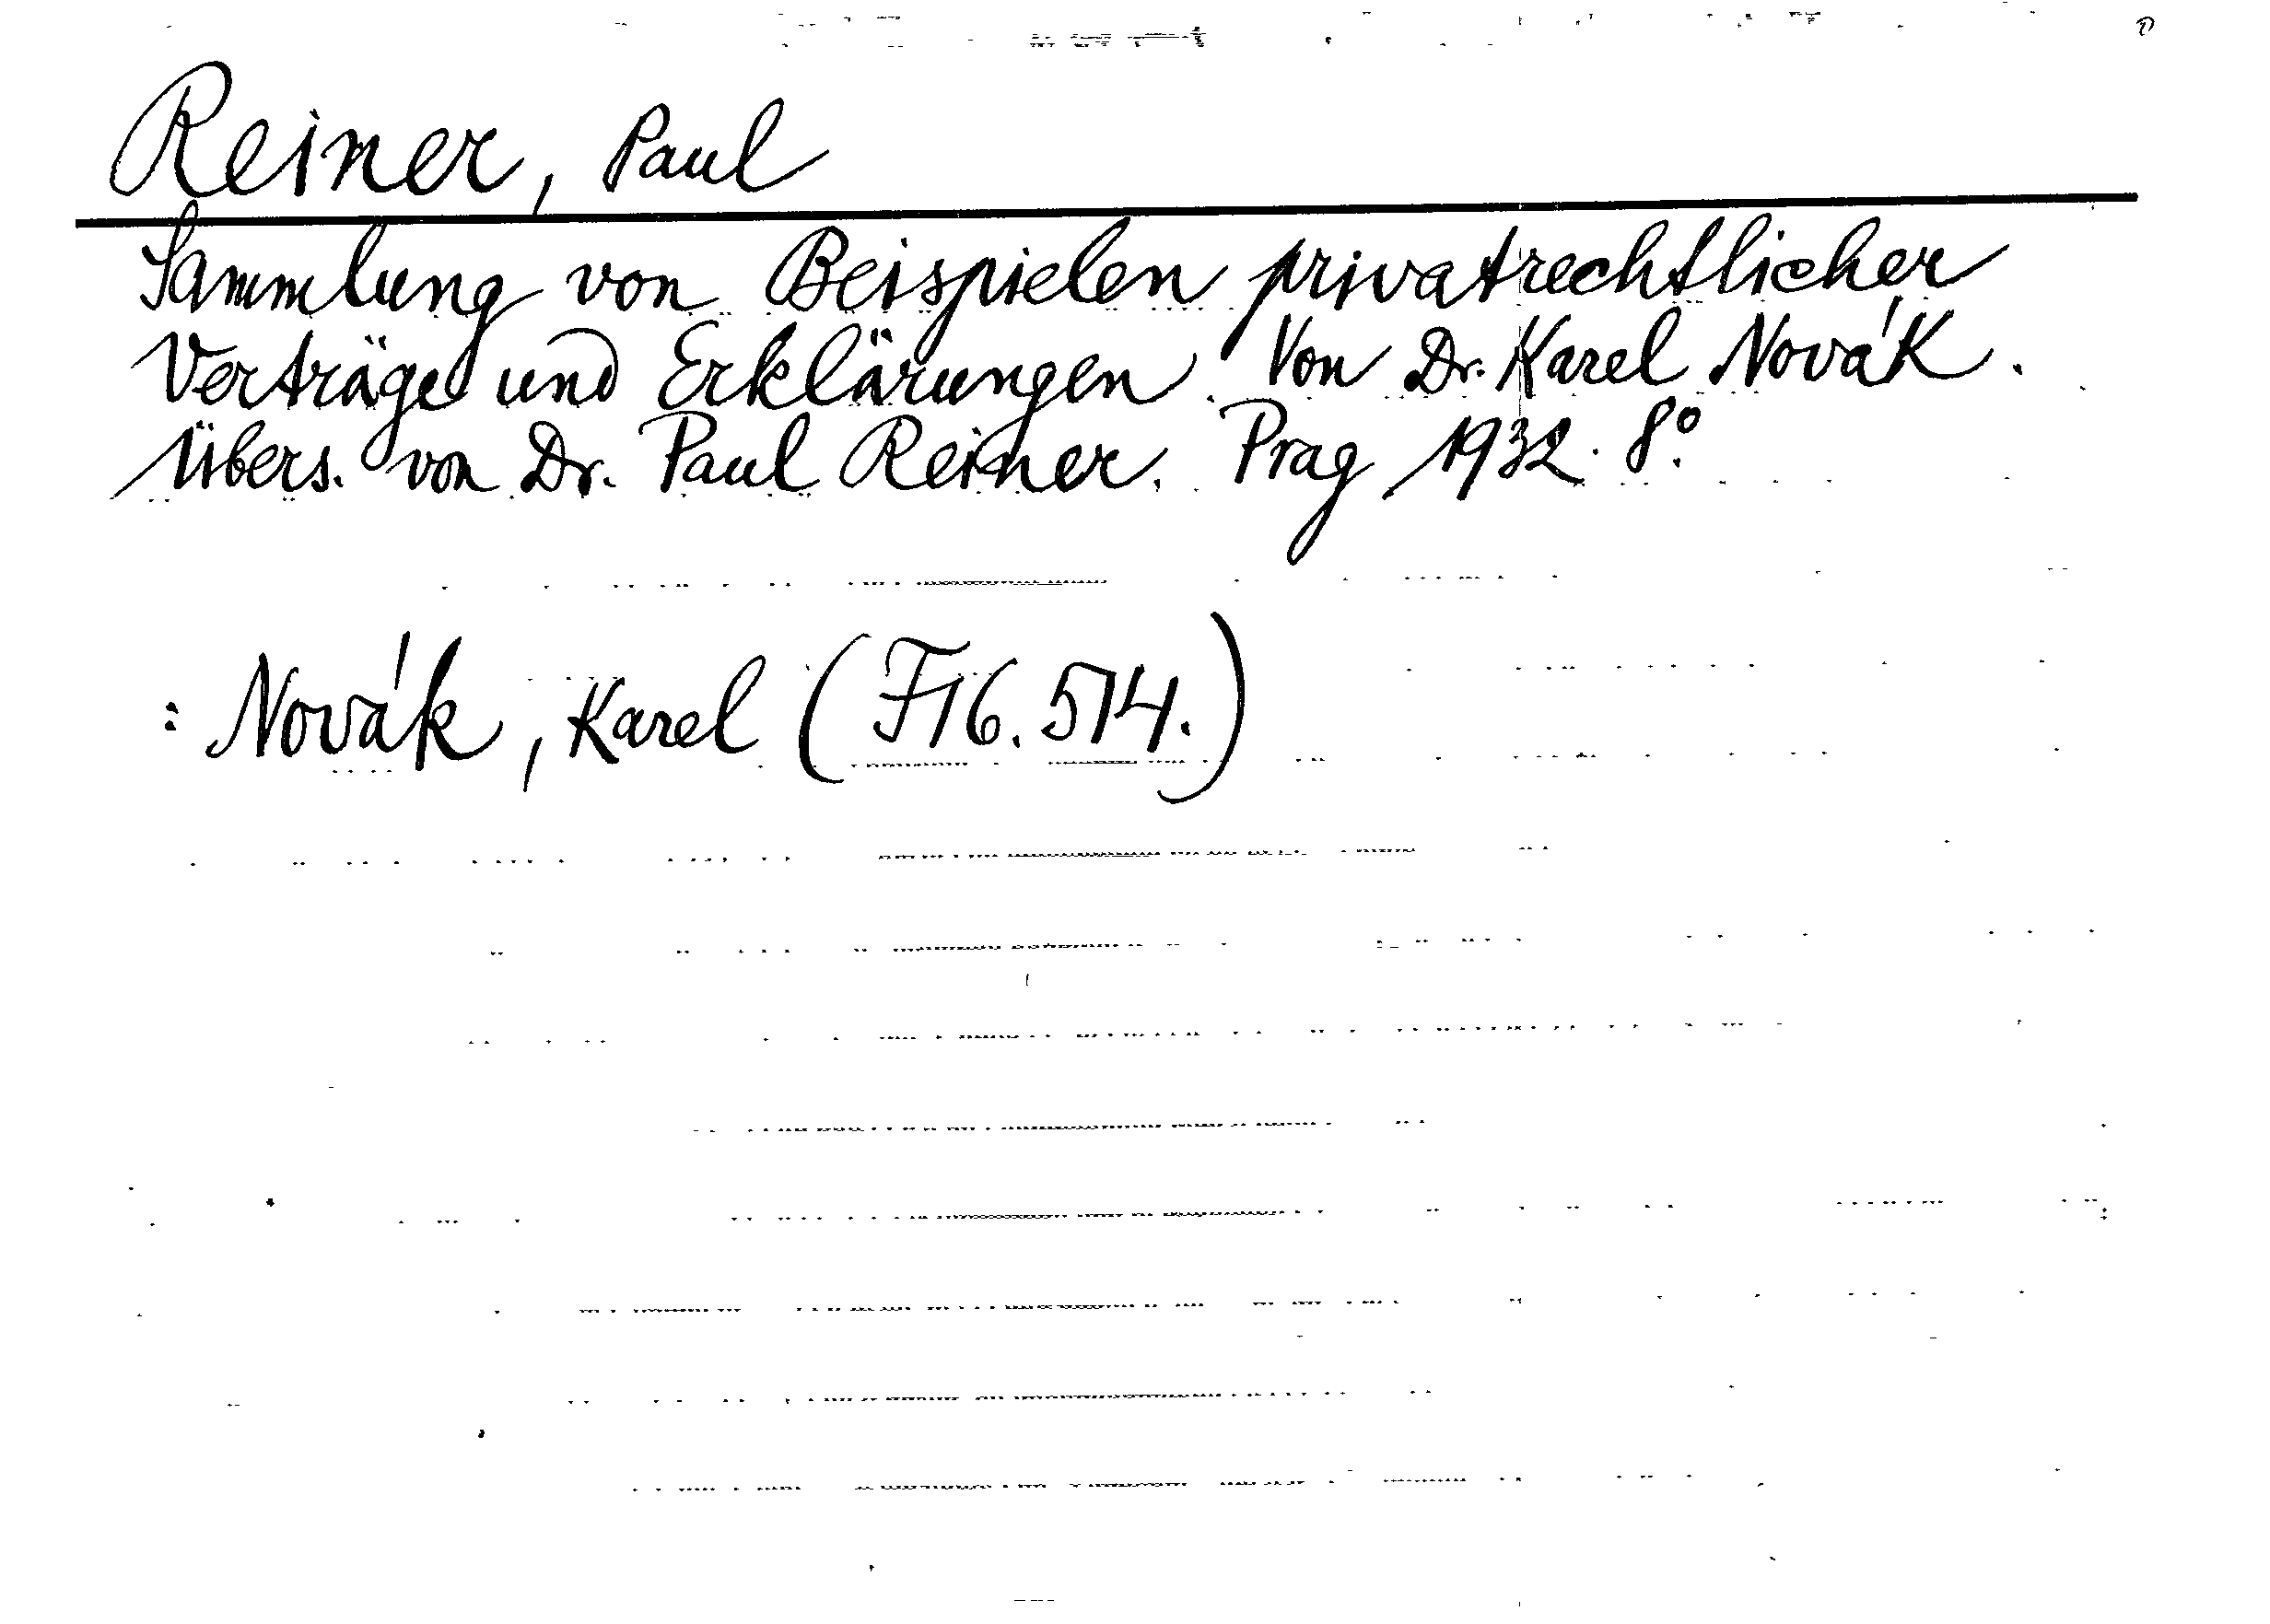 Reiner, Paul
Sammlung von Beispielen privatrechtlicher
Verträge und Erklärungen. Von Dr. Karel Novák.
Übers. von Dr. Paul Reiner. Prag 1932. 8°.
: Novák, Karel (F 16. 514.)